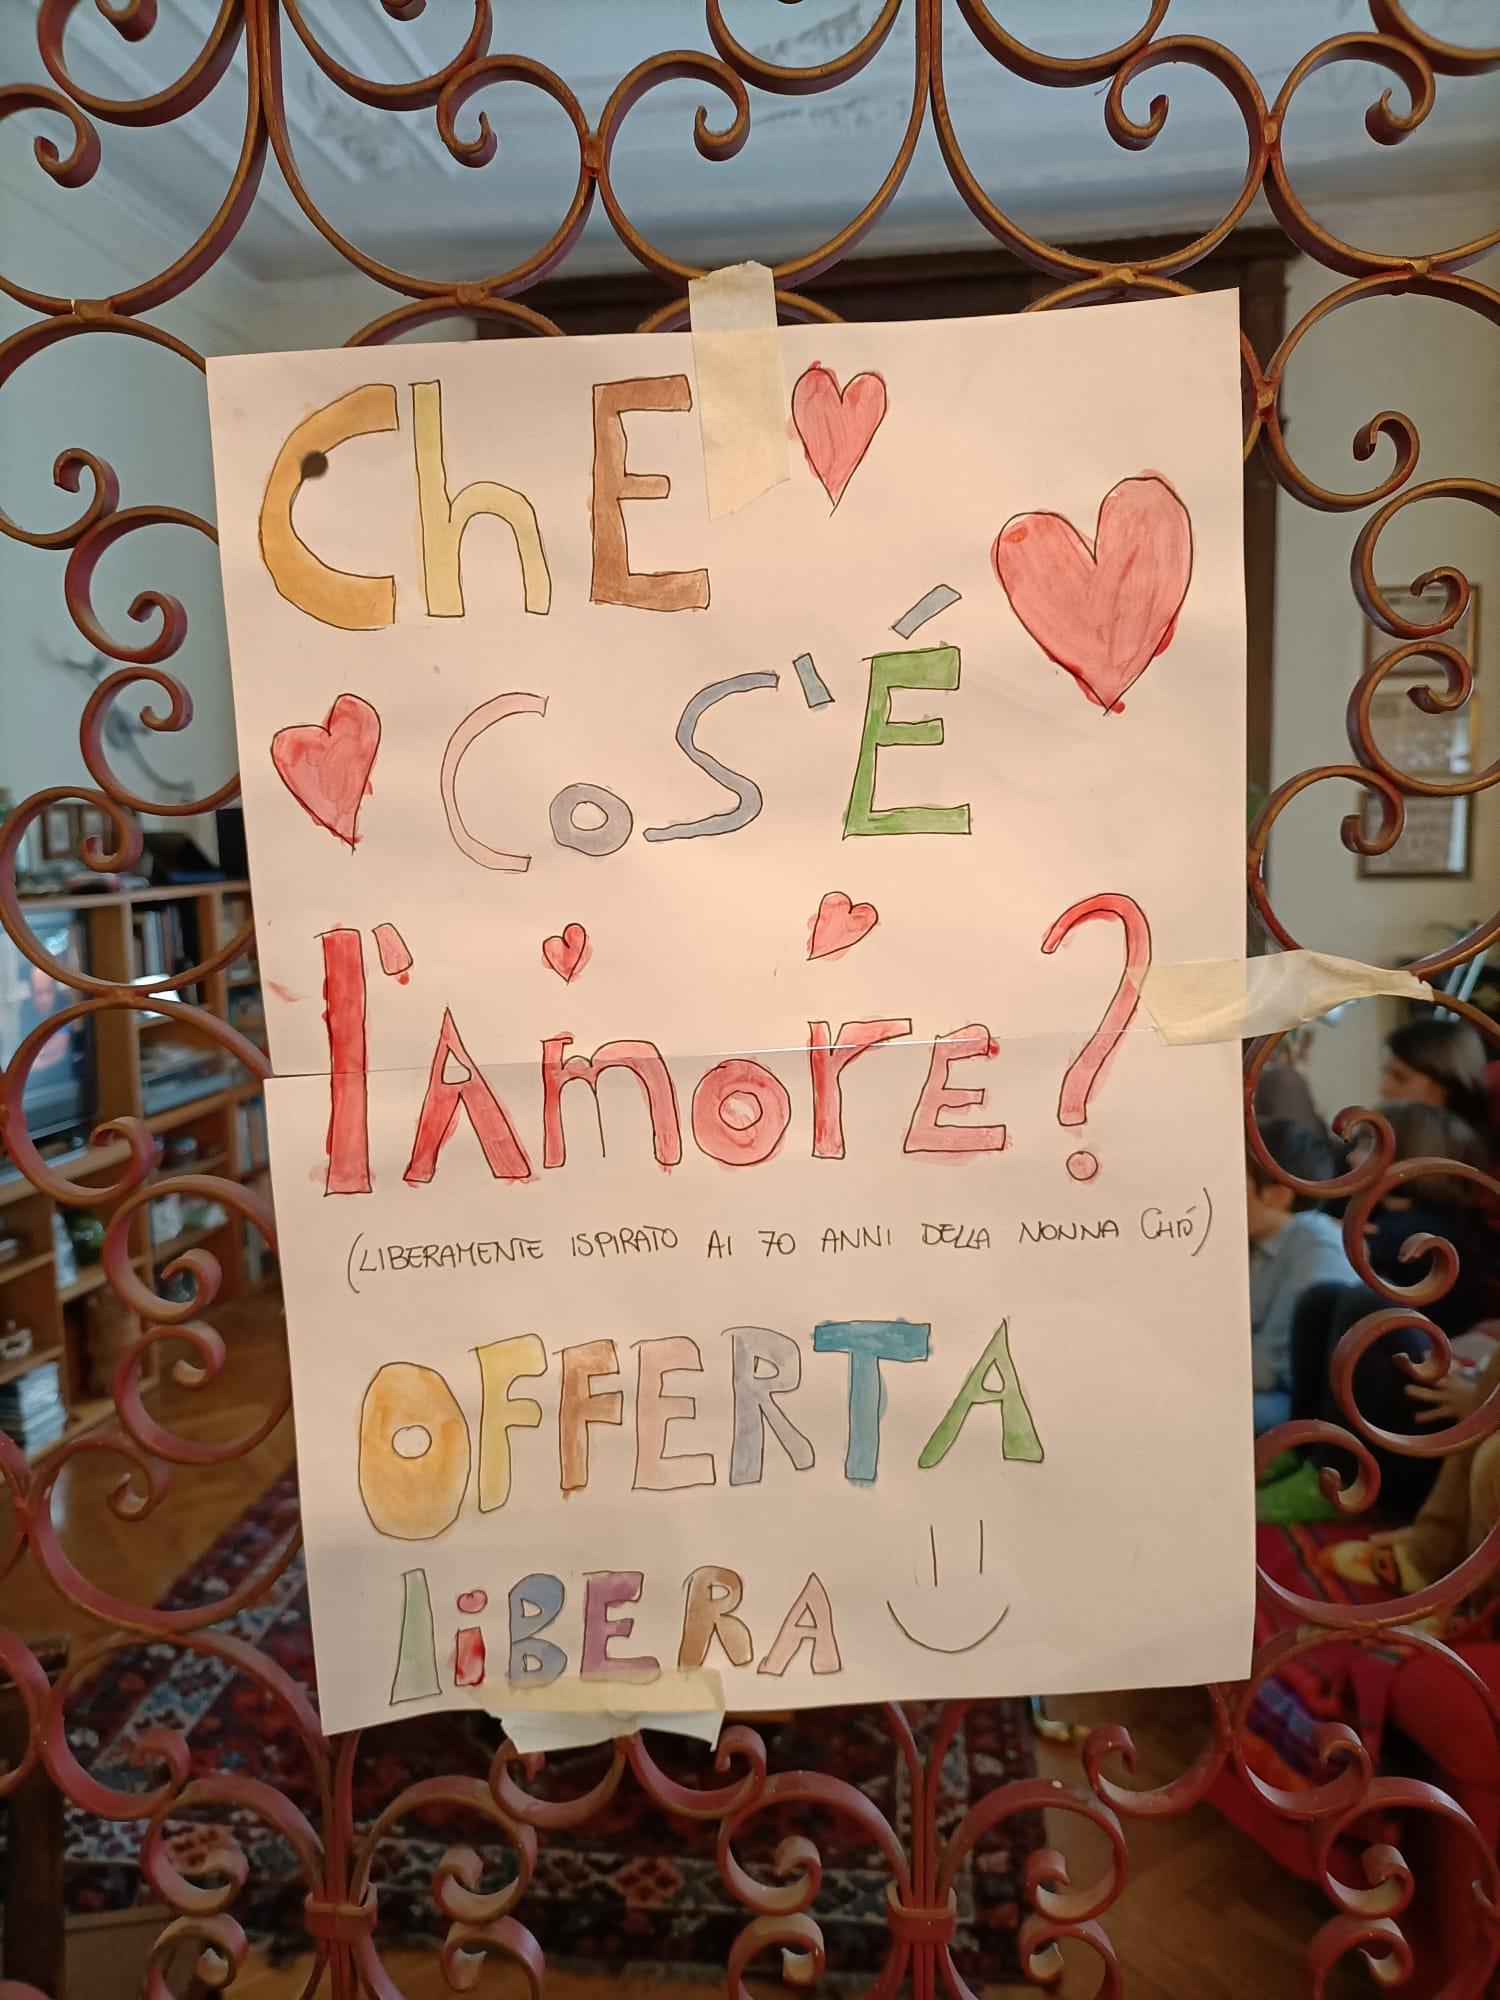 ChE
CoS'É
l'AmorE?
(LIBERAMENTE ISPIRATO AI 70 ANNI DELLA NONNA CHIÓ)
OFFERTA
liBERA